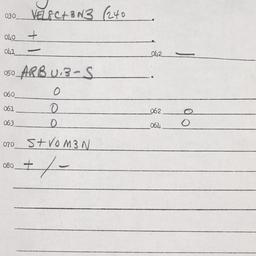 030 VELECT3N3 (240
040 +
041 — 042 —
050 ARBU.3-S
060 0
061 0 062 0
063 0 064 0
070 STVOM3N
080 + / -